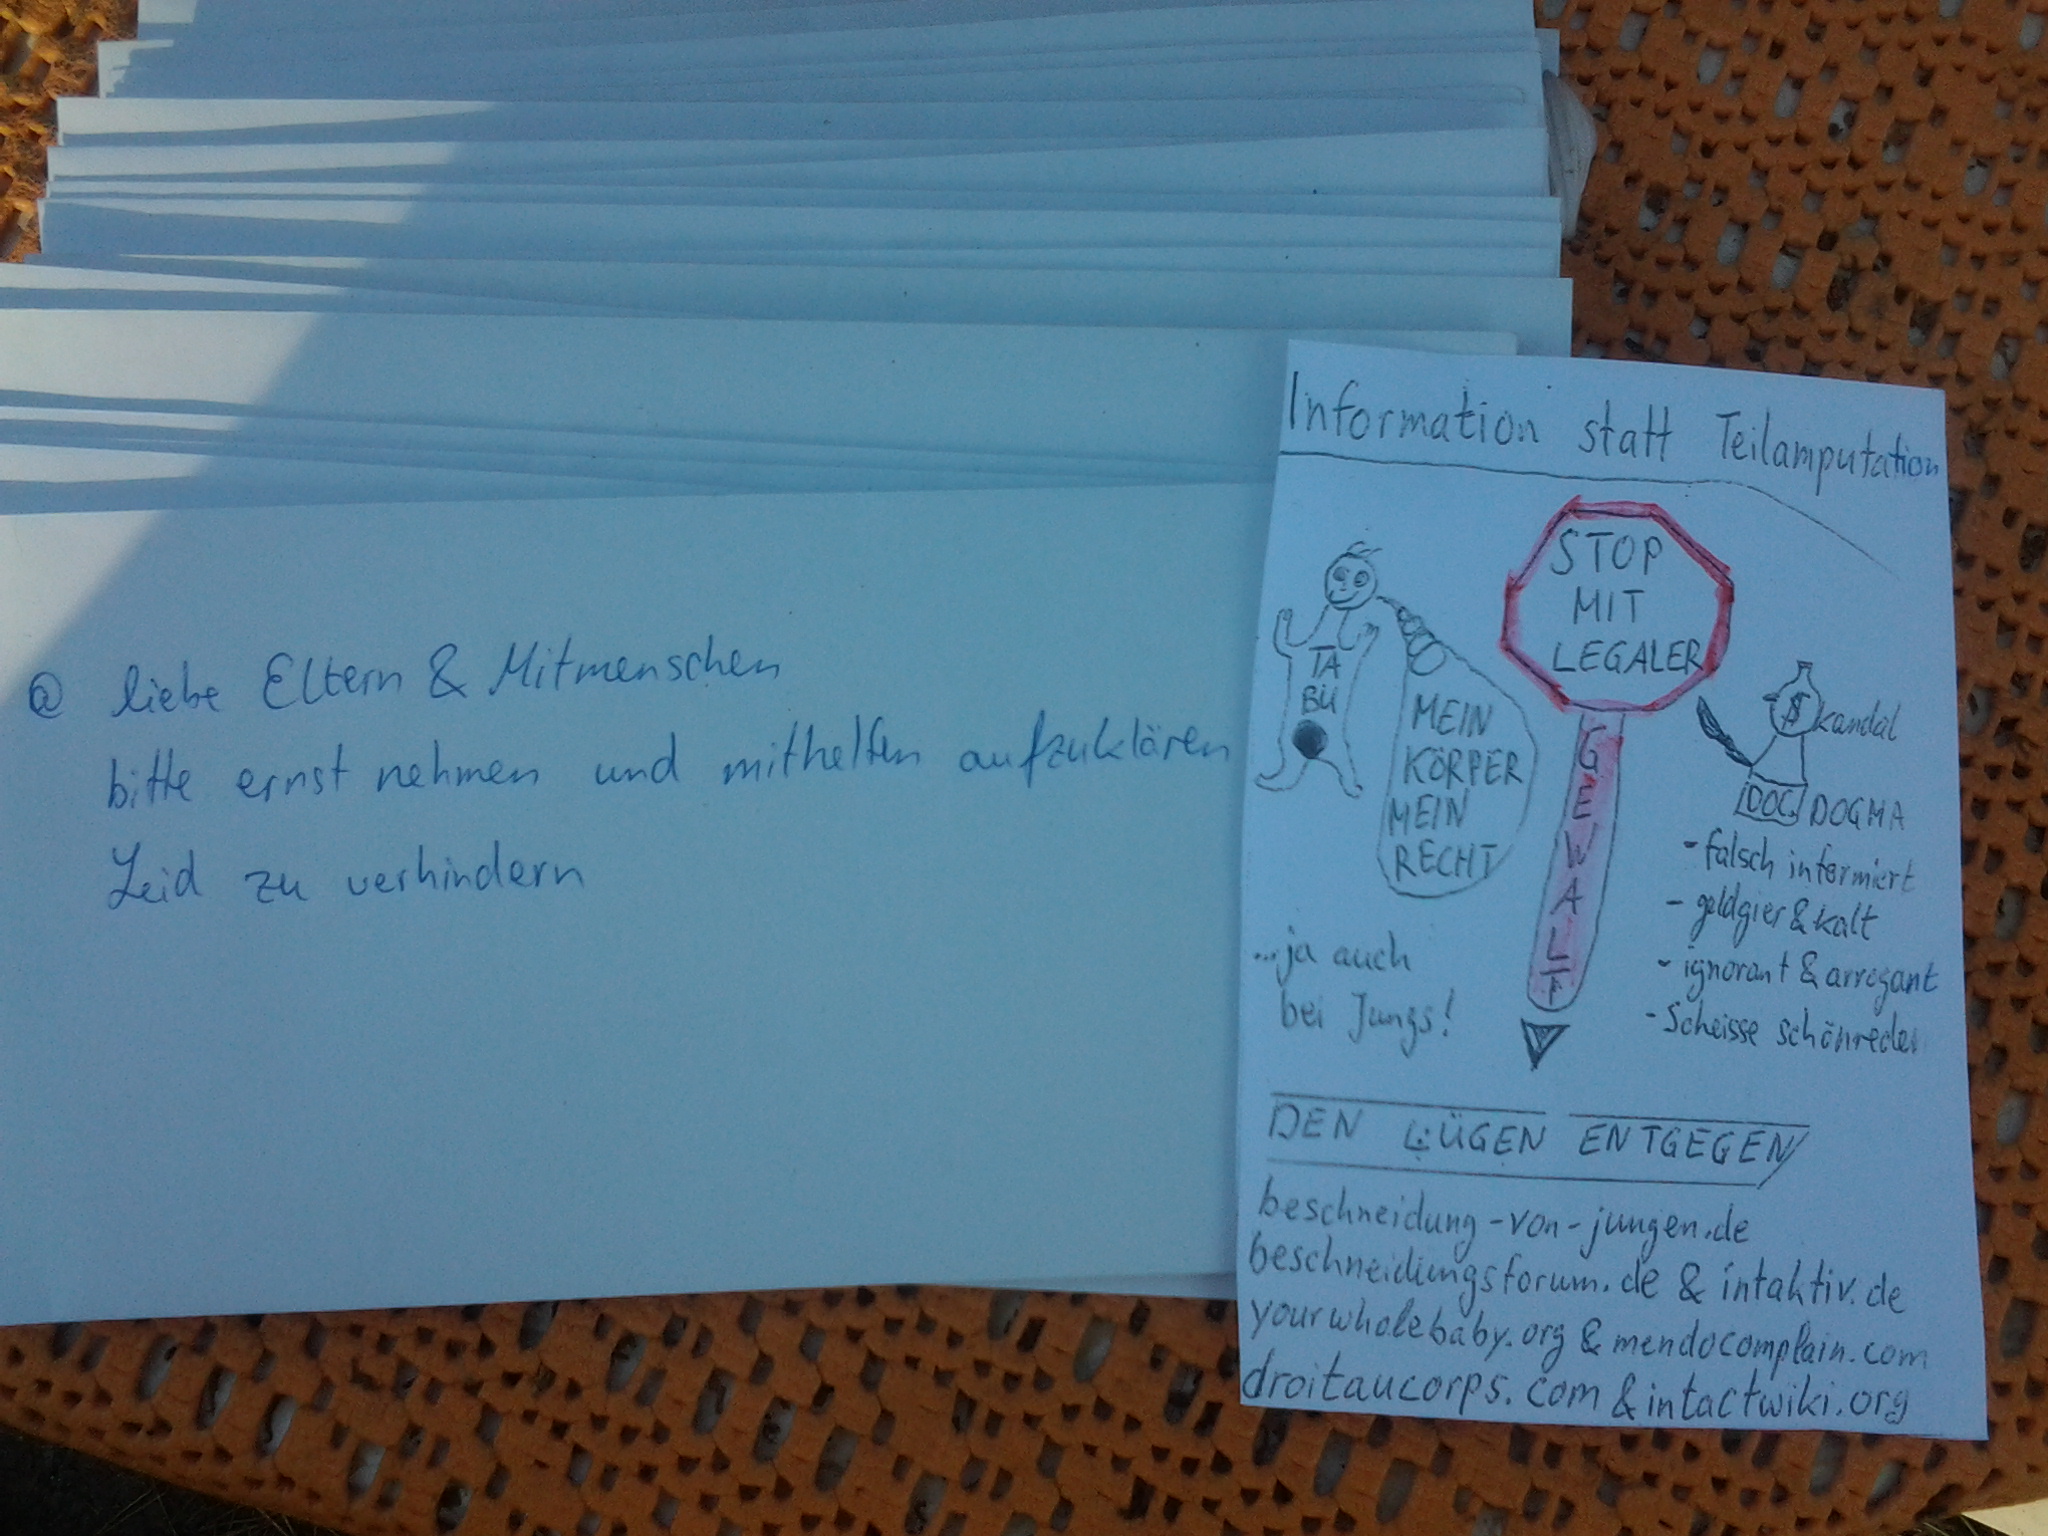 @ liebe Eltern & Mitmenschen
bitte ernst nehmen und mithelfen aufzuklären
Leid zu verhindern
Information statt Teilamputation
STOP
MIT
LEGALER
GEWALT
TA
BU
MEIN
KÖRPER
MEIN
RECHT
...ja auch
bei Jungs!
$kandal
DOC DOGMA
- falsch informiert
- geldgier & kalt
- ignorant & arrogant
- Scheisse schönreden
DEN LÜGEN ENTGEGEN
beschneidung-von-jungen.de
beschneidungsforum.de & intaktiv.de
yourwholebaby.org & mendocomplain.com
droitaucorps.com & intactwiki.org